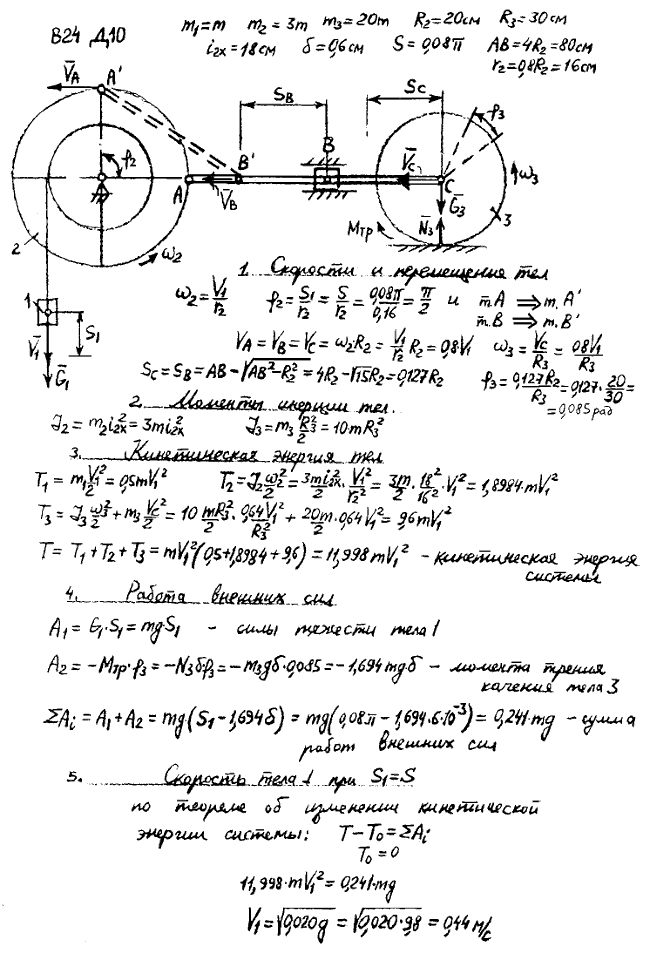 В24 Д10
m₁=m m₂=3m m₃=20m R₂=20см R₃=30см
i₂ₓ=18см δ=0,6см S=0,08π AB=4R₂=80см
r₂=0,8R₂=16см
V̄A A' SB SC φ₃
φ₂ B' B V̄C C ω₃
A V̄B Ḡ₃
Mтр N̄₃ 3
2 ω₂
1 S₁
V̄₁
Ḡ₁
1. Скорости и перемещения тел
ω₂=V₁/r₂ φ₂=S₁/r₂=S/r₂=0,08π/0,16=π/2 и т.A ⟹ т.A'
т.B ⟹ т.B'
VA=VB=VC=ω₂·R₂=V₁/r₂ R₂=0,8V₁ ω₃=VC/R₃=0,8V₁/R₃
SC=SB=AB-√(AB²-R₂²)=4R₂-√15R₂=0,127R₂ φ₃=0,127R₂/R₃=0,127·20/30=
=0,085рад
2. Моменты инерции тел.
J₂=m₂i₂ₓ²=3mi₂ₓ² J₃=m₃R₃²/2=10mR₃²
3. Кинетическая энергия тел
T₁=m₁V₁²/2=0,5mV₁² T₂=J₂ω₂²/2=3mi₂ₓ²/2·V₁²/r₂²=3m/2·18²/16²·V₁²=1,8984·mV₁²
T₃=J₃ω₃²/2+m₃VC²/2=10mR₃²/2·0,64V₁²/R₃²+20m/2·0,64V₁²=9,6mV₁²
T=T₁+T₂+T₃=mV₁²(0,5+1,8984+9,6)=11,998mV₁² - кинетическая энергия
системы
4. Работа внешних сил
A₁=G₁·S₁=mgS₁ - силы тяжести тела 1
A₂=-Mтр·φ₃=-N₃δφ₃=-m₃gδ·0,085=-1,694mgδ - момента трения
качения тела 3
ΣAᵢ=A₁+A₂=mg(S₁-1,694δ)=mg(0,08π-1,694·6·10⁻³)=0,241·mg - сумма
работ внешних сил
5. Скорость тела 1 при S₁=S
по теореме об изменении кинетической
энергии системы: T-T₀=ΣAᵢ
T₀=0
11,998·mV₁²=0,241·mg
V₁=√0,020g=√0,020·9,8=0,44м/с